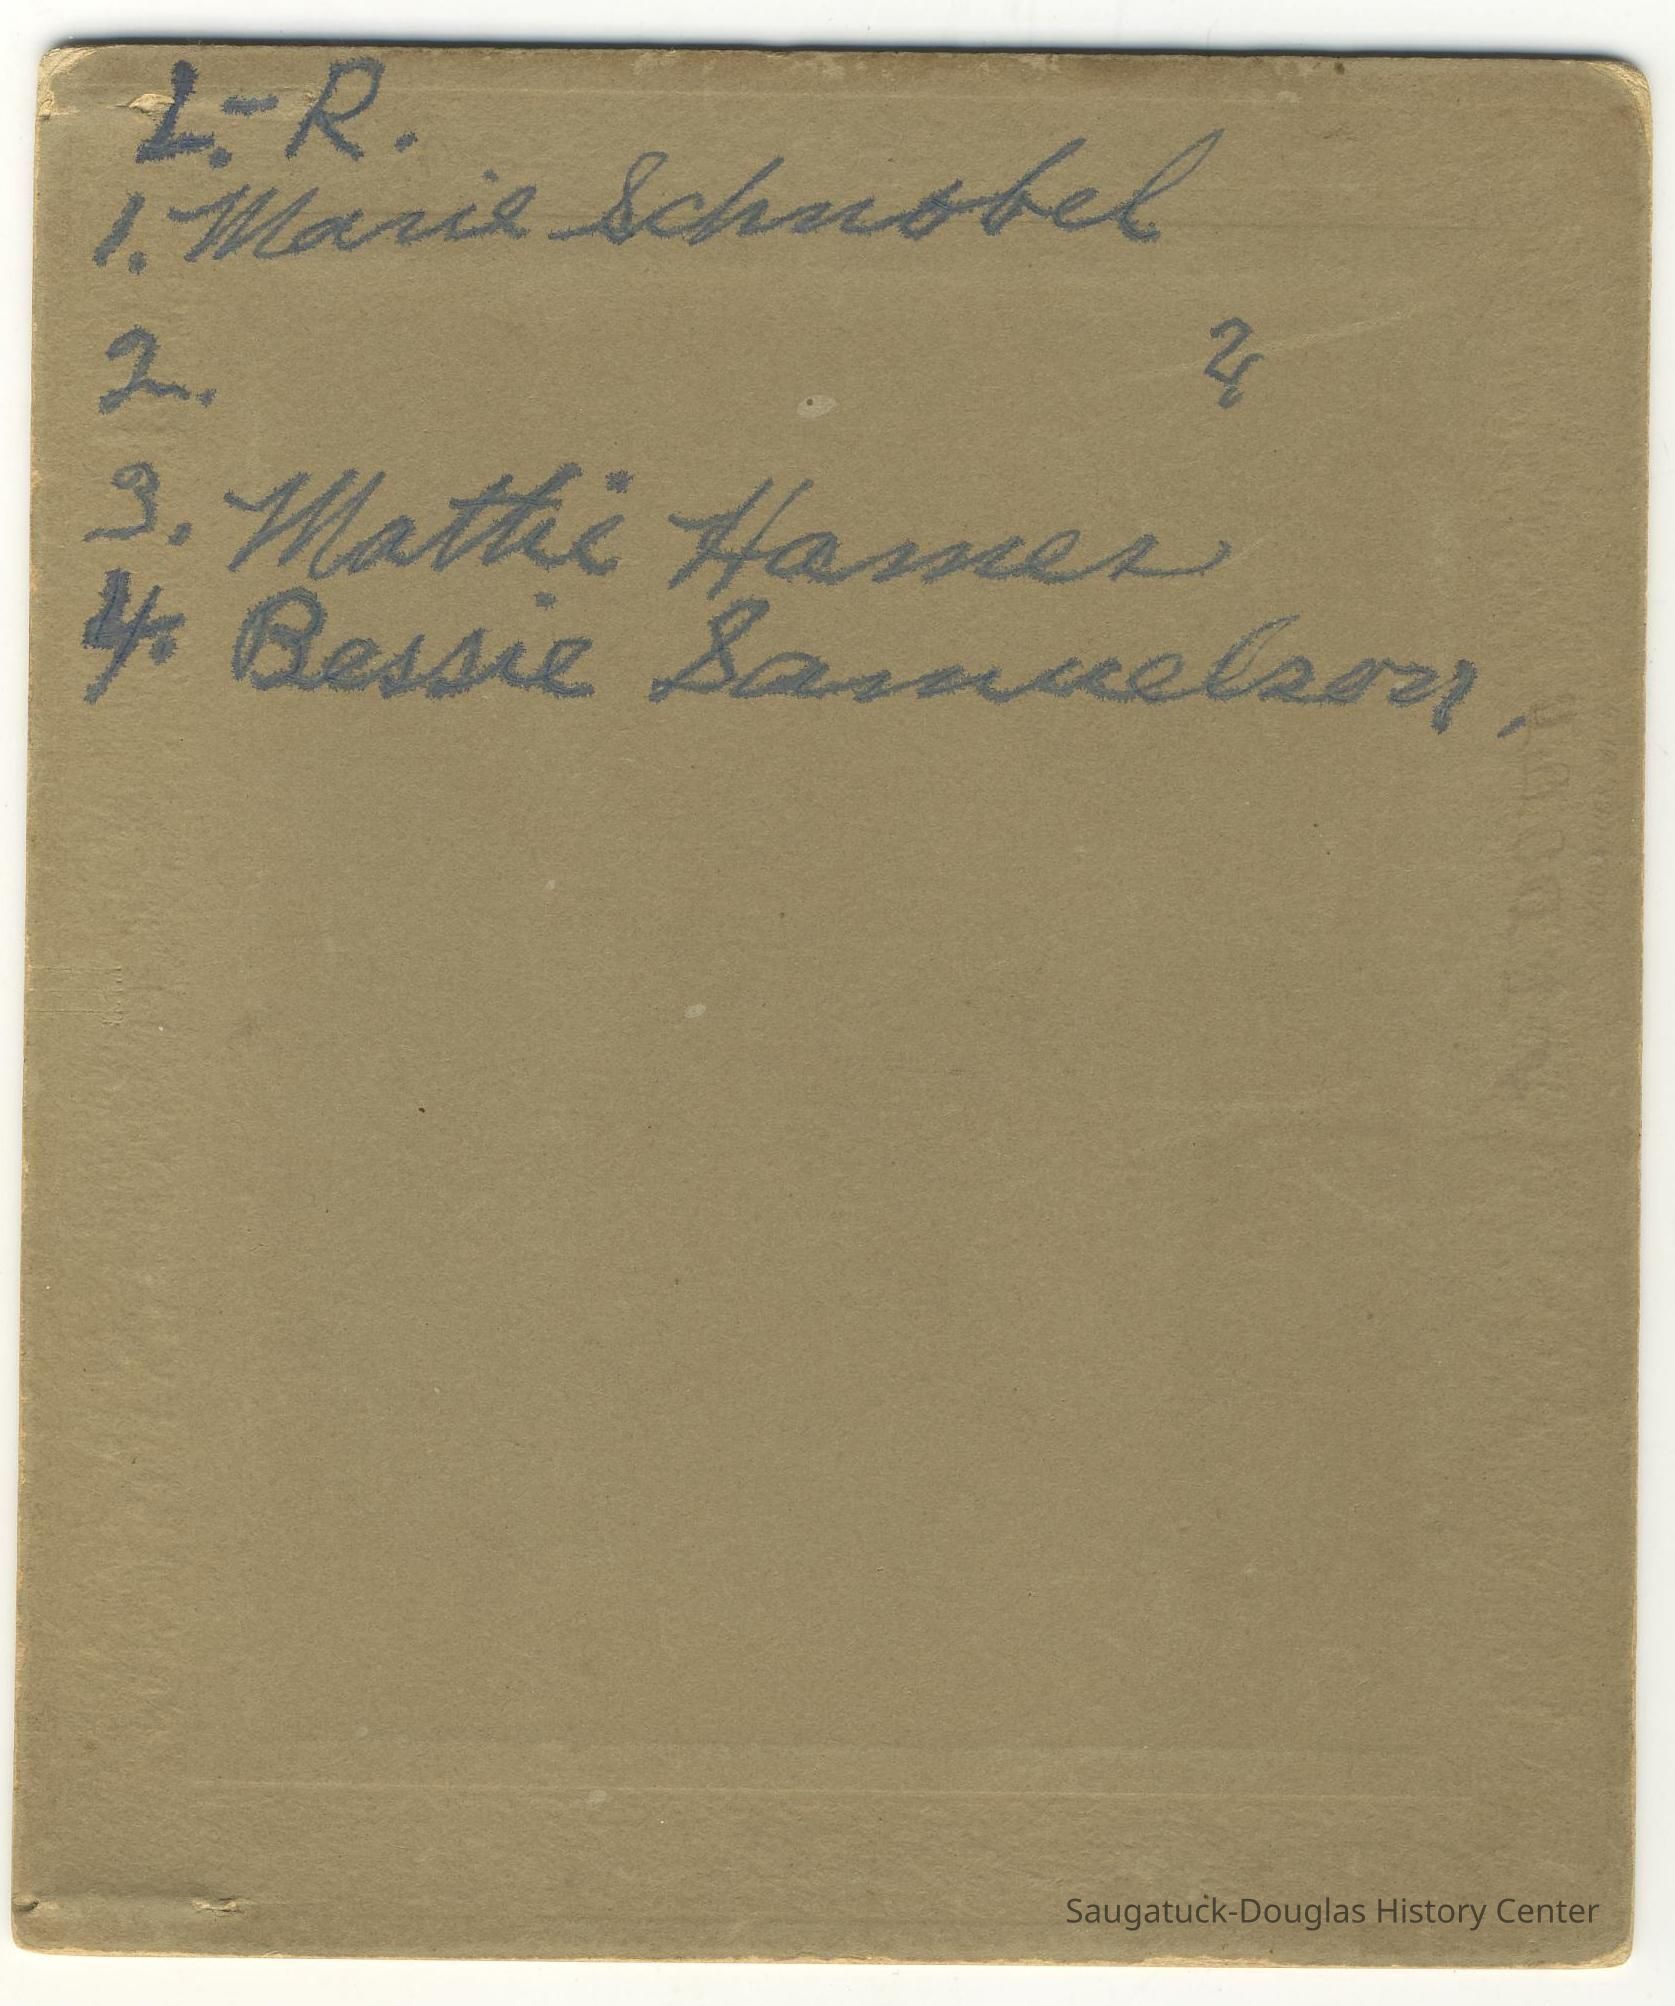 L.-R.
1. Marie Schnobel
2. ?
3. Mattie Hames
4. Bessie Samuelson.
Saugatuck-Douglas History Center